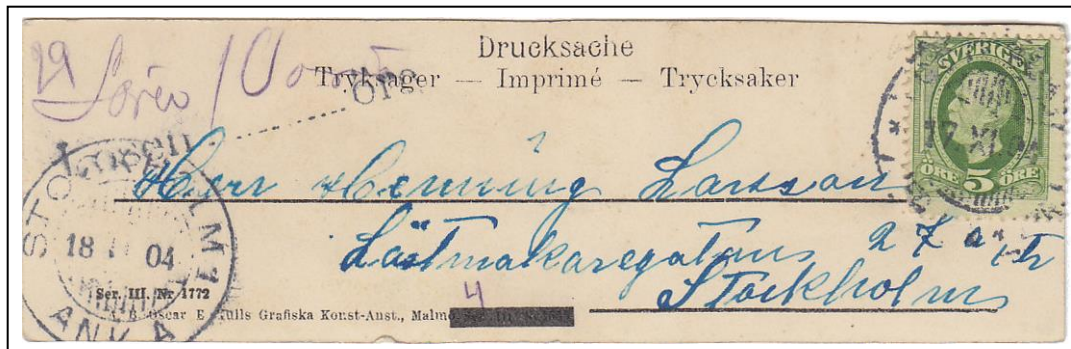 Drucksache
Tryksager — Imprimé — Trycksaker
29
SVERIGE
17 XI
ÖRE 5 ÖRE
Herr Henning Larsson
Lästmakaregatan 27 a
Stockholm
STOCKHOLM 1
18 04
ANK
Ser. III. Nr 1772
Oscar E. Kulls Grafiska Konst-Anst., Malmö
4